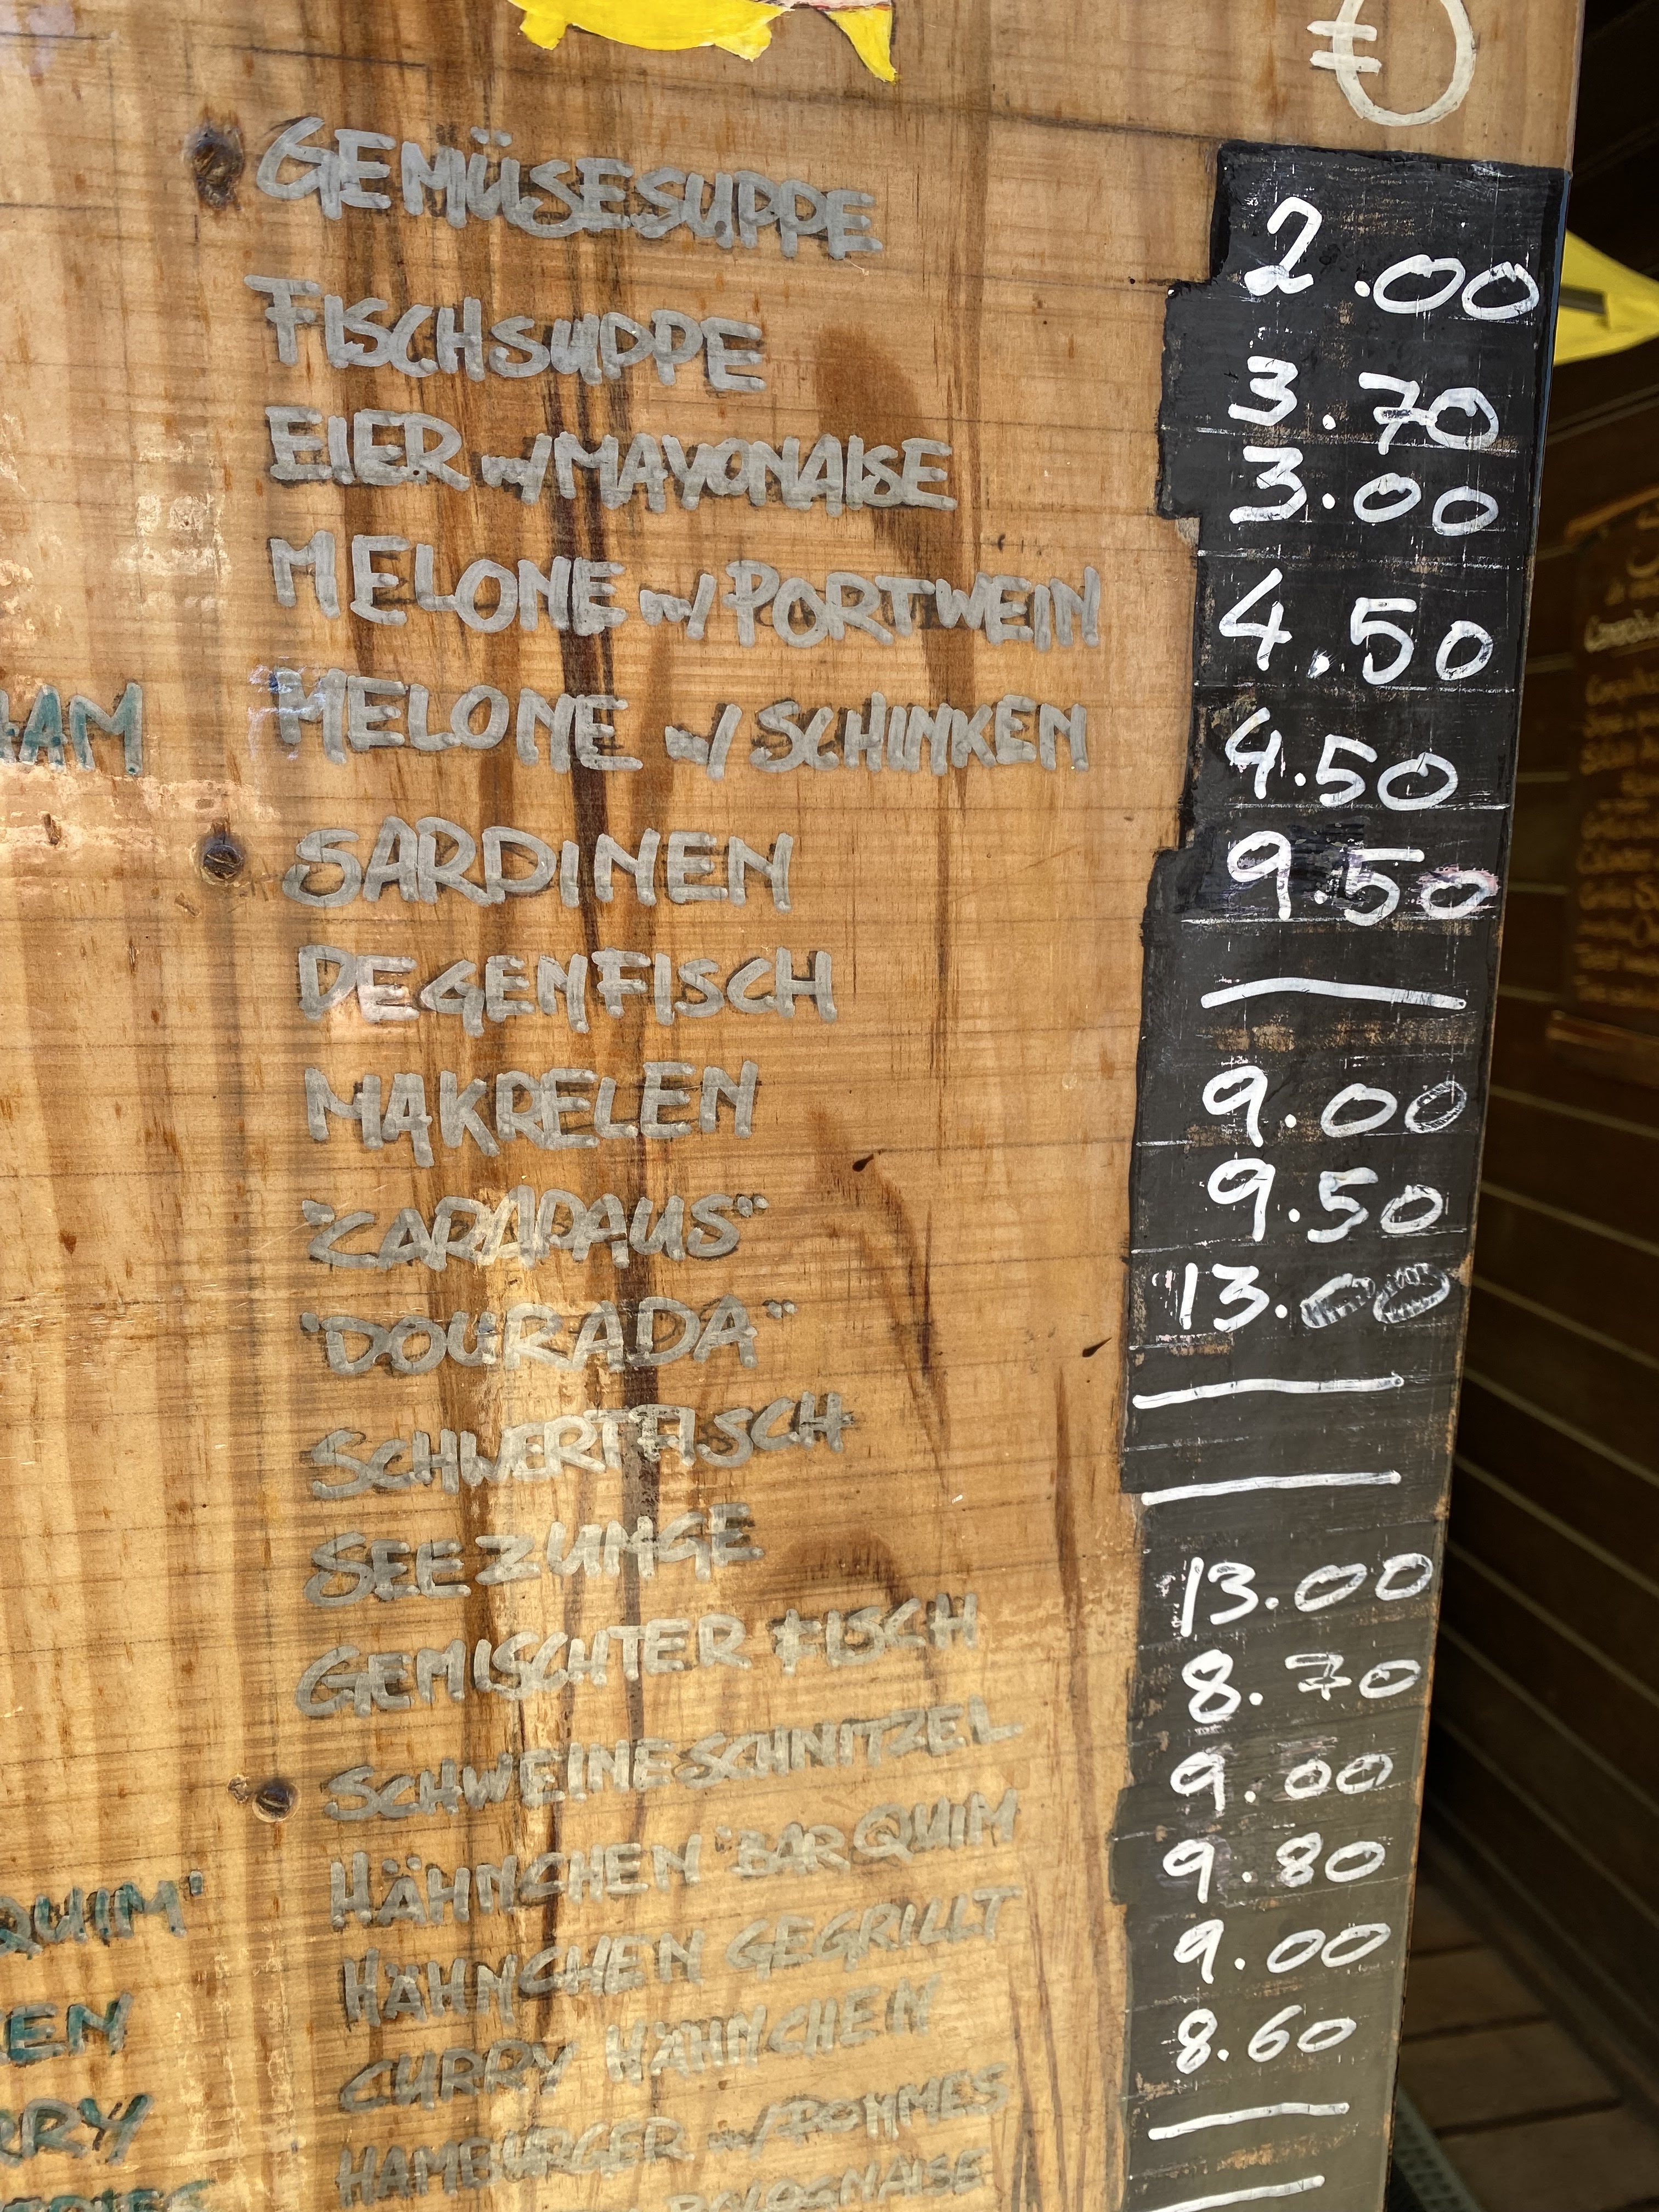 €
GEMÜSESUPPE 2.00
FISCHSUPPE 3.70
EIER w/MAYONAISE 3.00
MELONE w/ PORTWEIN 4.50
HAM MELONE w/ SCHINKEN 4.50
SARDINEN 9.50
DEGENFISCH —
MAKRELEN 9.00
"CARAPAUS" 9.50
"DOURADA" 13.00
SCHWERTFISCH —
SEEZUNGE —
GEMISCHTER FISCH 13.00
SCHWEINESCHNITZEL 8.70
QUIM" HÄHNCHEN "BAR QUIM 9.00
EN HÄHNCHEN GEGRILLT 9.80
RRY CURRY HÄHNCHEN 9.00
HAMBURGER w/POMMES 8.60
BOLOGNAISE —
—